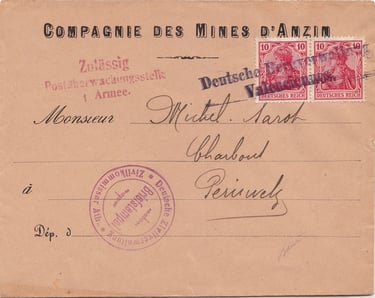 COMPAGNIE DES MINES D'ANZIN
Zulässig
Postüberwachungsstelle
1 Armee.
Deutsche
Valenciennes.
10 10
10 10
DEUTSCHES REICH
DEUTSCHES REICH
Monsieur Michel
Charbons
à Péruwelz
Dép. d
Deutsche Zivilverwaltung
Zivilkommissar
Briefstempel